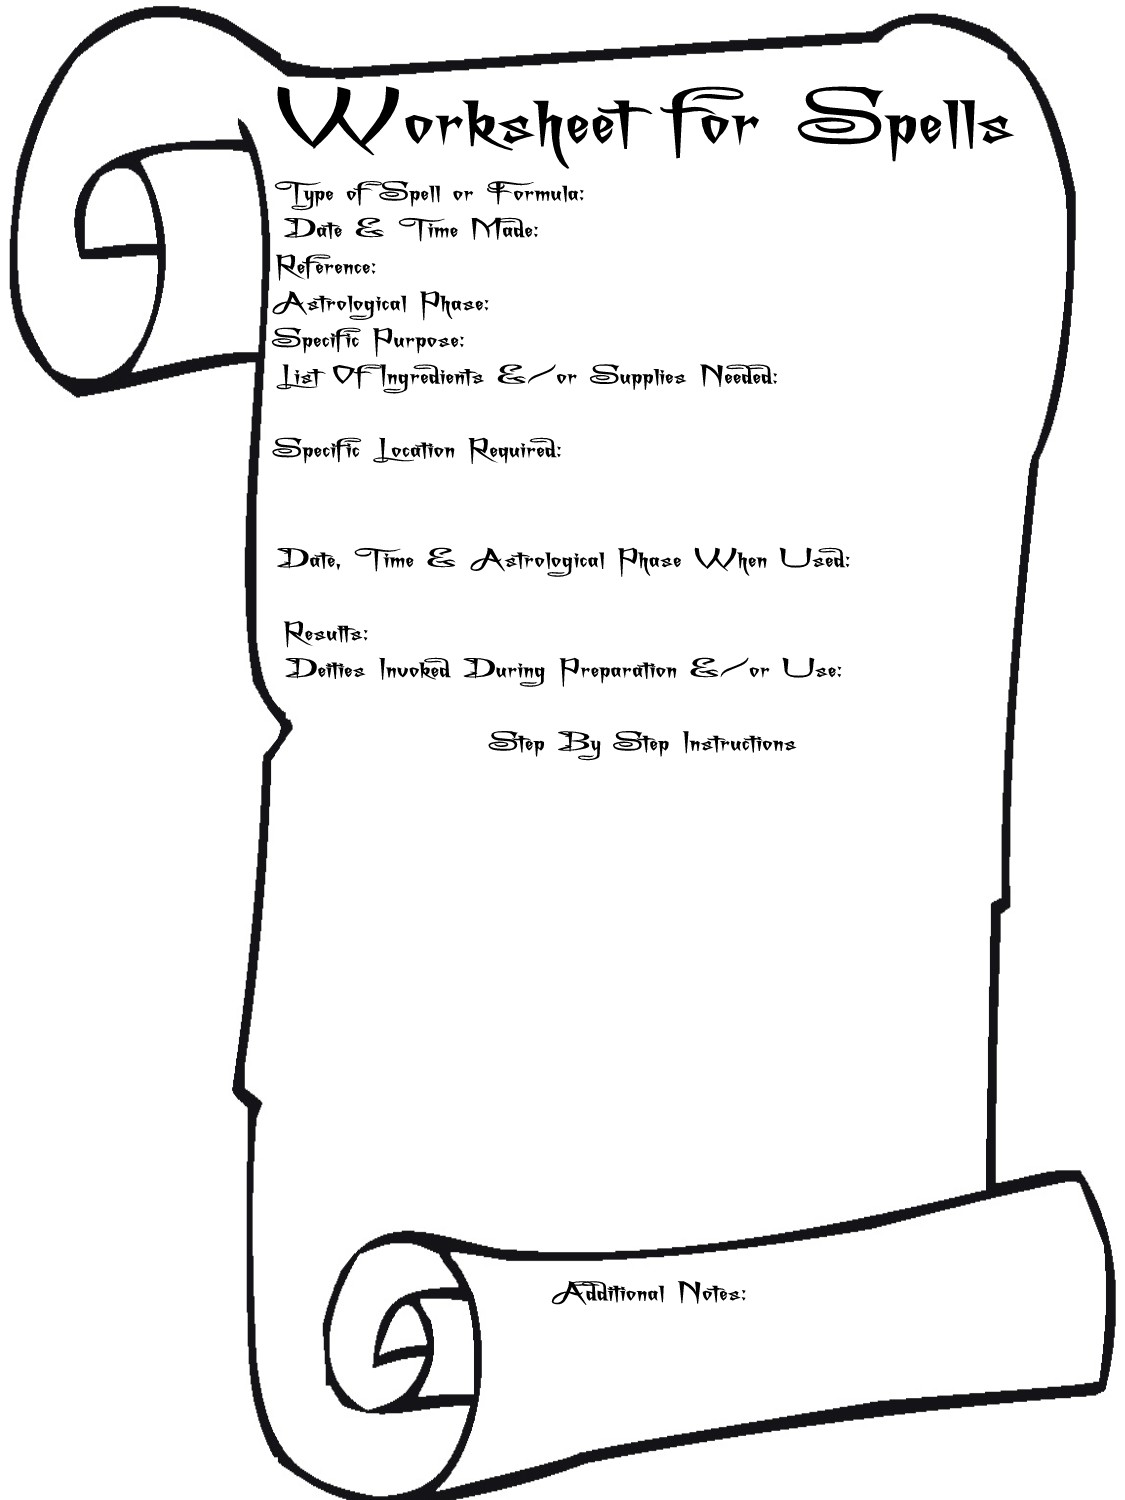 Worksheet for Spells
Type of Spell or Formula:
Date & Time Made:
Reference:
Astrological Phase:
Specific Purpose:
List Of Ingredients &/or Supplies Needed:
Specific Location Required:
Date, Time & Astrological Phase When Used:
Results:
Deities Invoked During Preparation &/or Use:
Step By Step Instructions
Additional Notes: